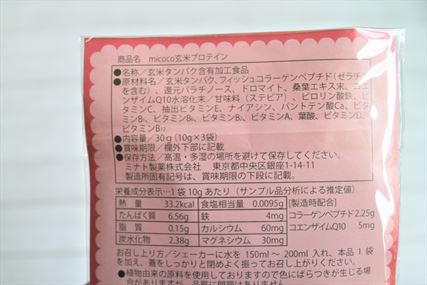 商品名 micoco玄米プロテイン
●名称／玄米タンパク含有加工食品
●原材料名／玄米タンパク、フィッシュコラーゲンペプチド（ゼラチン
を含む）、還元パラチノース、ドロマイト、桑葉エキス末、コエ
ンザイムQ10水溶化末／甘味料（ステビア）、ピロリン酸鉄、ビ
タミンC、抽出ビタミンE、ナイアシン、パントテン酸Ca、ビタ
ミンB₁、ビタミンB₆、ビタミンB₂、ビタミンA、葉酸、ビタミンD、
ビタミンB₁₂
●内容量／30g（10g×3袋）
●賞味期限／欄外下部に記載
●保存方法／高温・多湿の場所を避けて保存してください。
ミナト製薬株式会社 東京都中央区銀座1-14-11
製造所固有記号は、賞味期限の下段に記載
栄養成分表示…1袋10gあたり（サンプル品分析による推定値）
熱量 33.2kcal 食塩相当量 0.0095g [製造時配合]
たんぱく質 6.56g 鉄 4mg コラーゲンペプチド2.25g
脂質 0.15g カルシウム 60mg コエンザイムQ10 5mg
炭水化物 2.38g マグネシウム 30mg
お召し上り方／シェーカーに水を150ml～200ml入れ、本品1袋
を加え、蓋をしっかりと閉めよく振ってお召し上がりください。
●植物由来の原料を使用しておりますので色にばらつきが生じる場
合がありますが、品質に問題はありません。